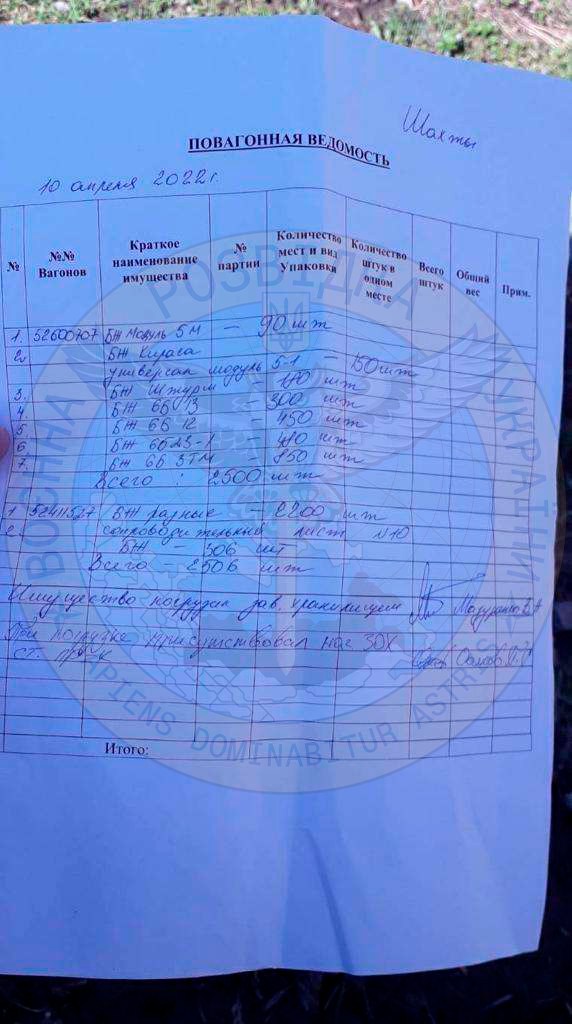 Шахты
ПОВАГОННАЯ ВЕДОМОСТЬ
10 апреля 2022г.
№ №№ Вагонов Краткое наименование имущества № партии Количество мест и вид Упаковки Количество штук в одном месте Всего штук Общий вес Прим.
1. 52600707 БЖ Модуль 5М — 90 шт
2. БЖ Кираса
универсал модуль 5-1 — 150 шт
3. БЖ Штурм — шт
4. БЖ 6Б13 — 300 шт
5 БЖ 6Б12 — 450 шт
6 БЖ 6Б23-1 — шт
7. БЖ 6Б3ТМ — 850 шт
Всего : 2500 шт
1 БЖ разные — 2200 шт
2. сопроводительный лист №10
БЖ — 306 шт
Всего — 2506 шт
Имущество погрузил зав. хранилищем
При погрузке присутствовал нас ЗОХ
ст.
Итого:
ВОЄННА РОЗВІДКА УКРАЇНИ
SAPIENS DOMINABITUR ASTRIS